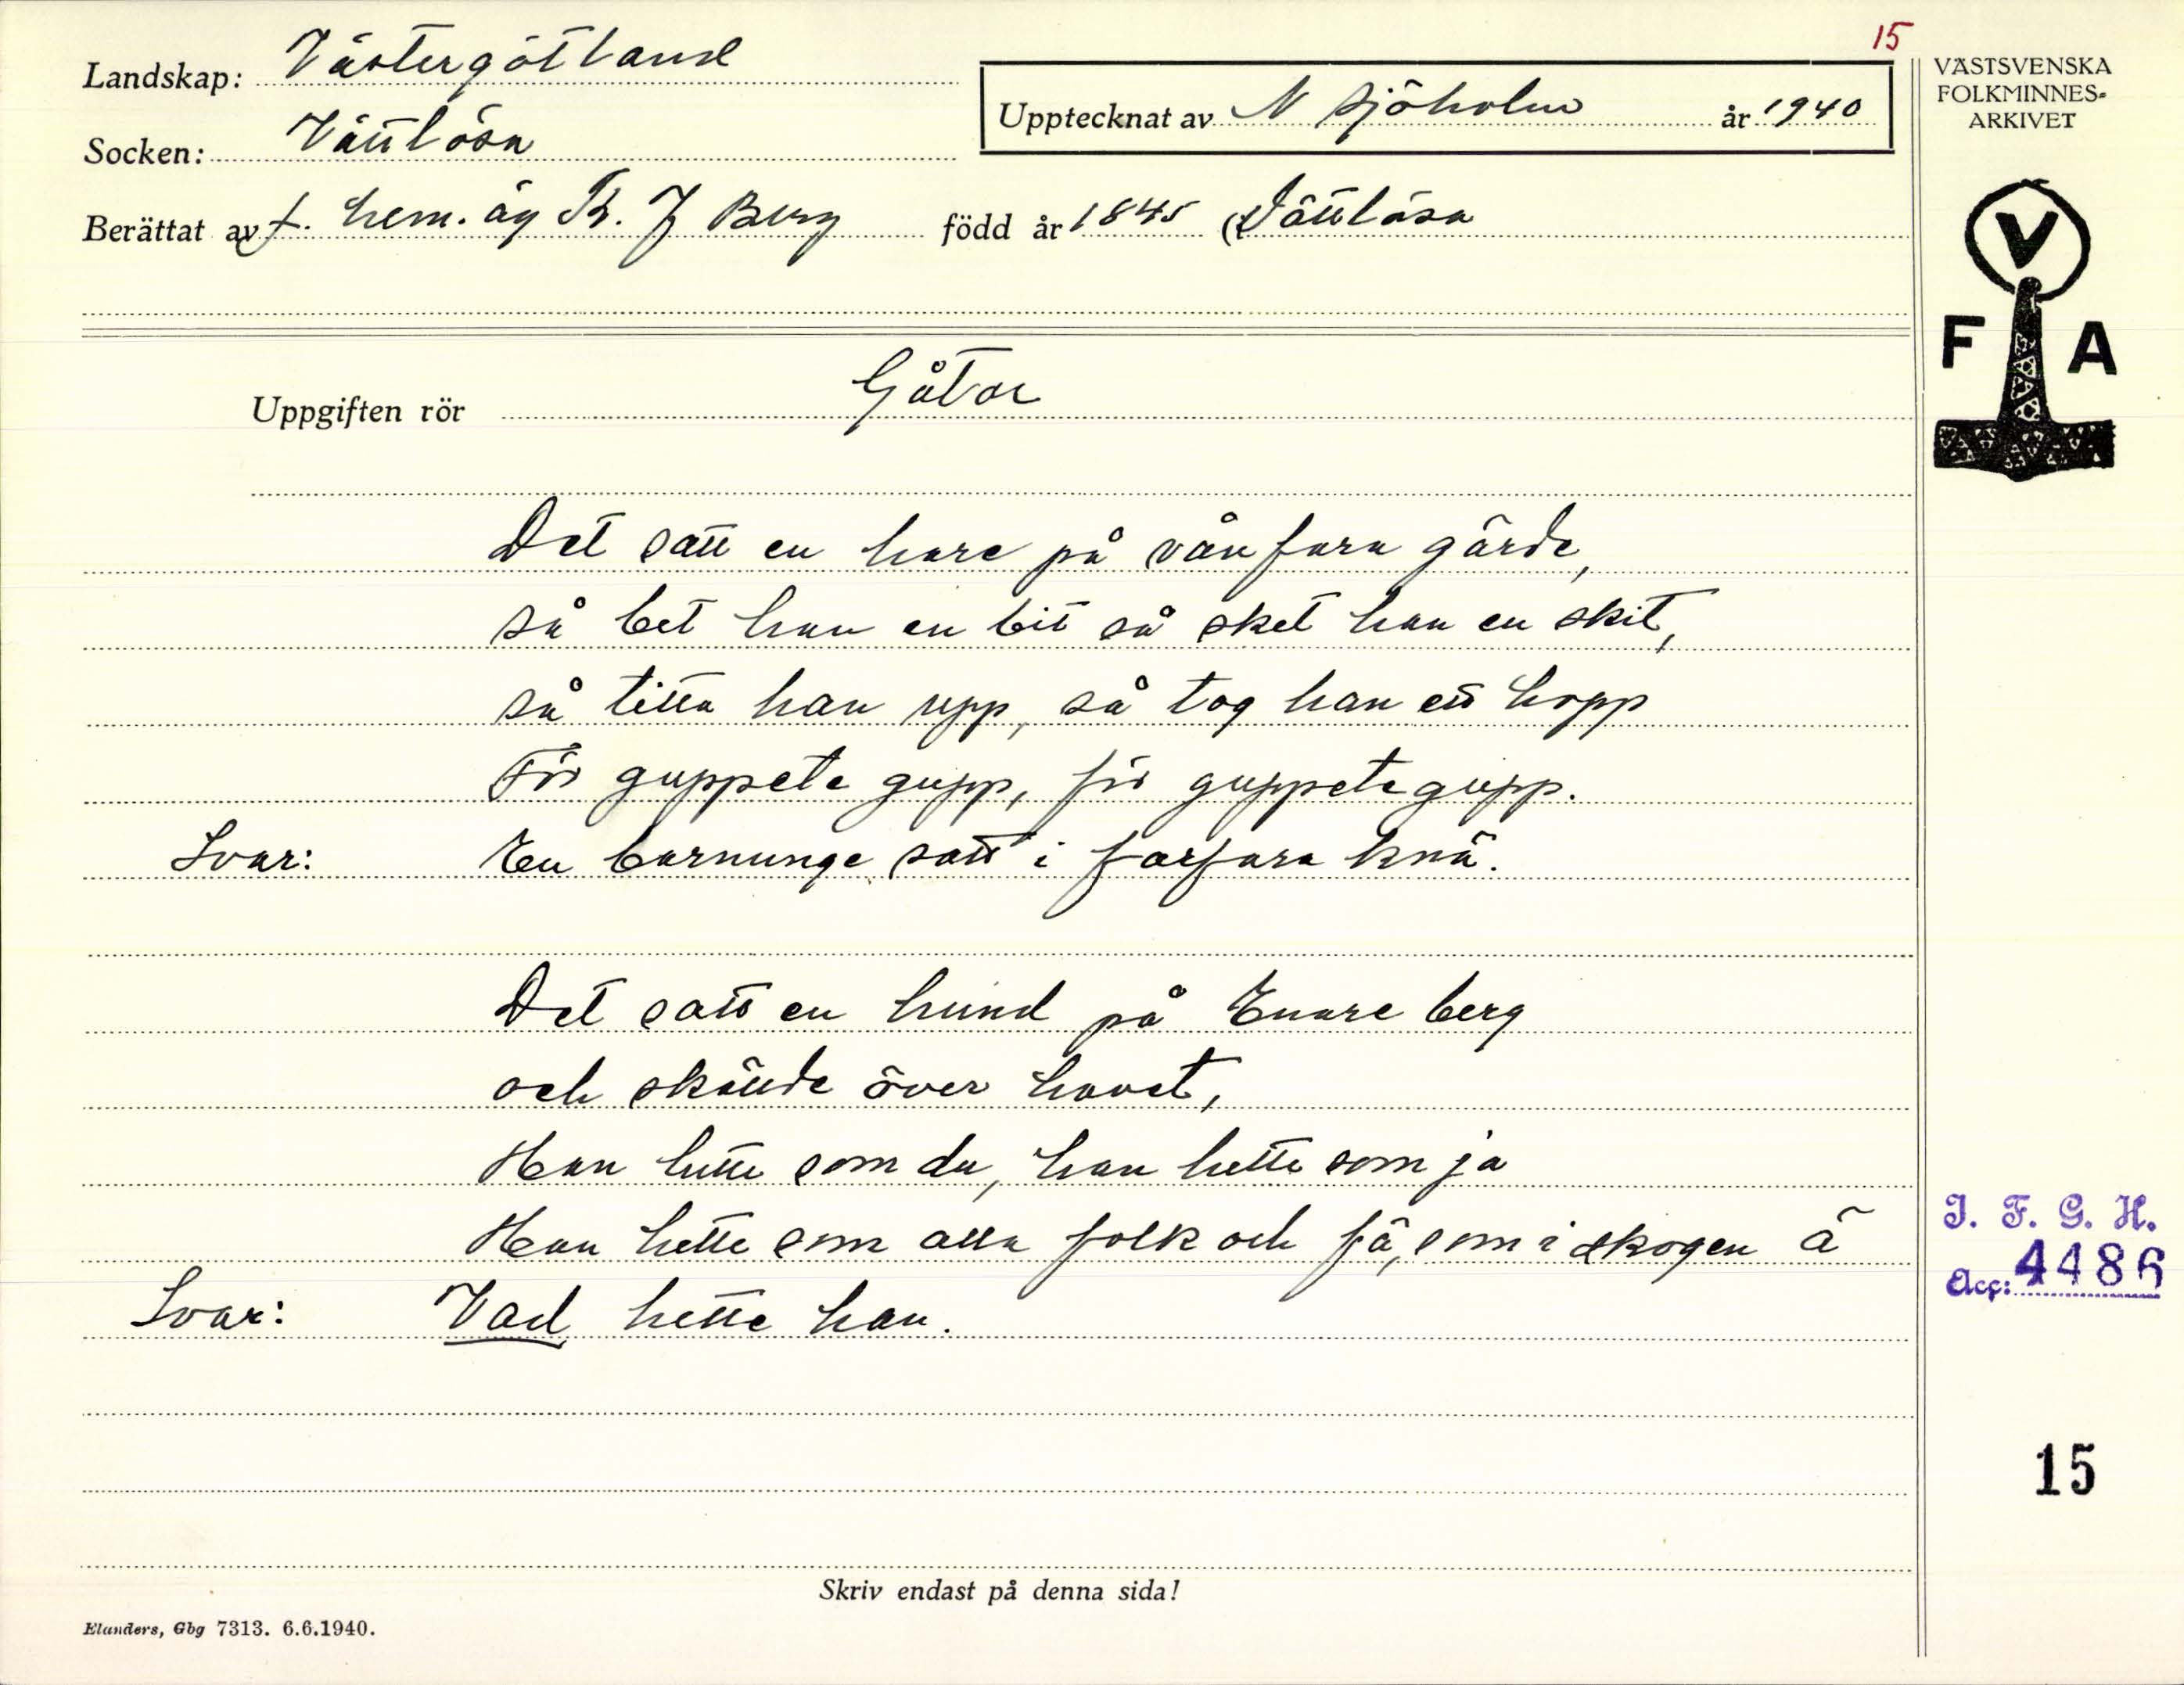 15
Landskap: Västergötland
VÄSTSVENSKA
FOLKMINNES-
ARKIVET
Upptecknat av N Sjöholm år 1940
Socken: Vättlösa
Berättat av f. hem. äg J Berg född år 1845 i Vättlösa
V
F A
Uppgiften rör Gåtor
Det satt en hare på vån fara gärde,
så bet han en bit så sket han en skit,
så titta han upp, så tog han ett hopp
För guppete gupp, för guppete gupp.
Svar: En barnunge satt i farfars knä.
Det satt en hund på Enare berg
och skådde över havet,
Han hette som du, han hette som ja
Han hette som alla folk och fä, som i skogen ä
Svar: Vad hette han.
I. F. G. H.
Acc: 4486
15
Skriv endast på denna sida!
Elanders, Gbg 7313. 6.6.1940.